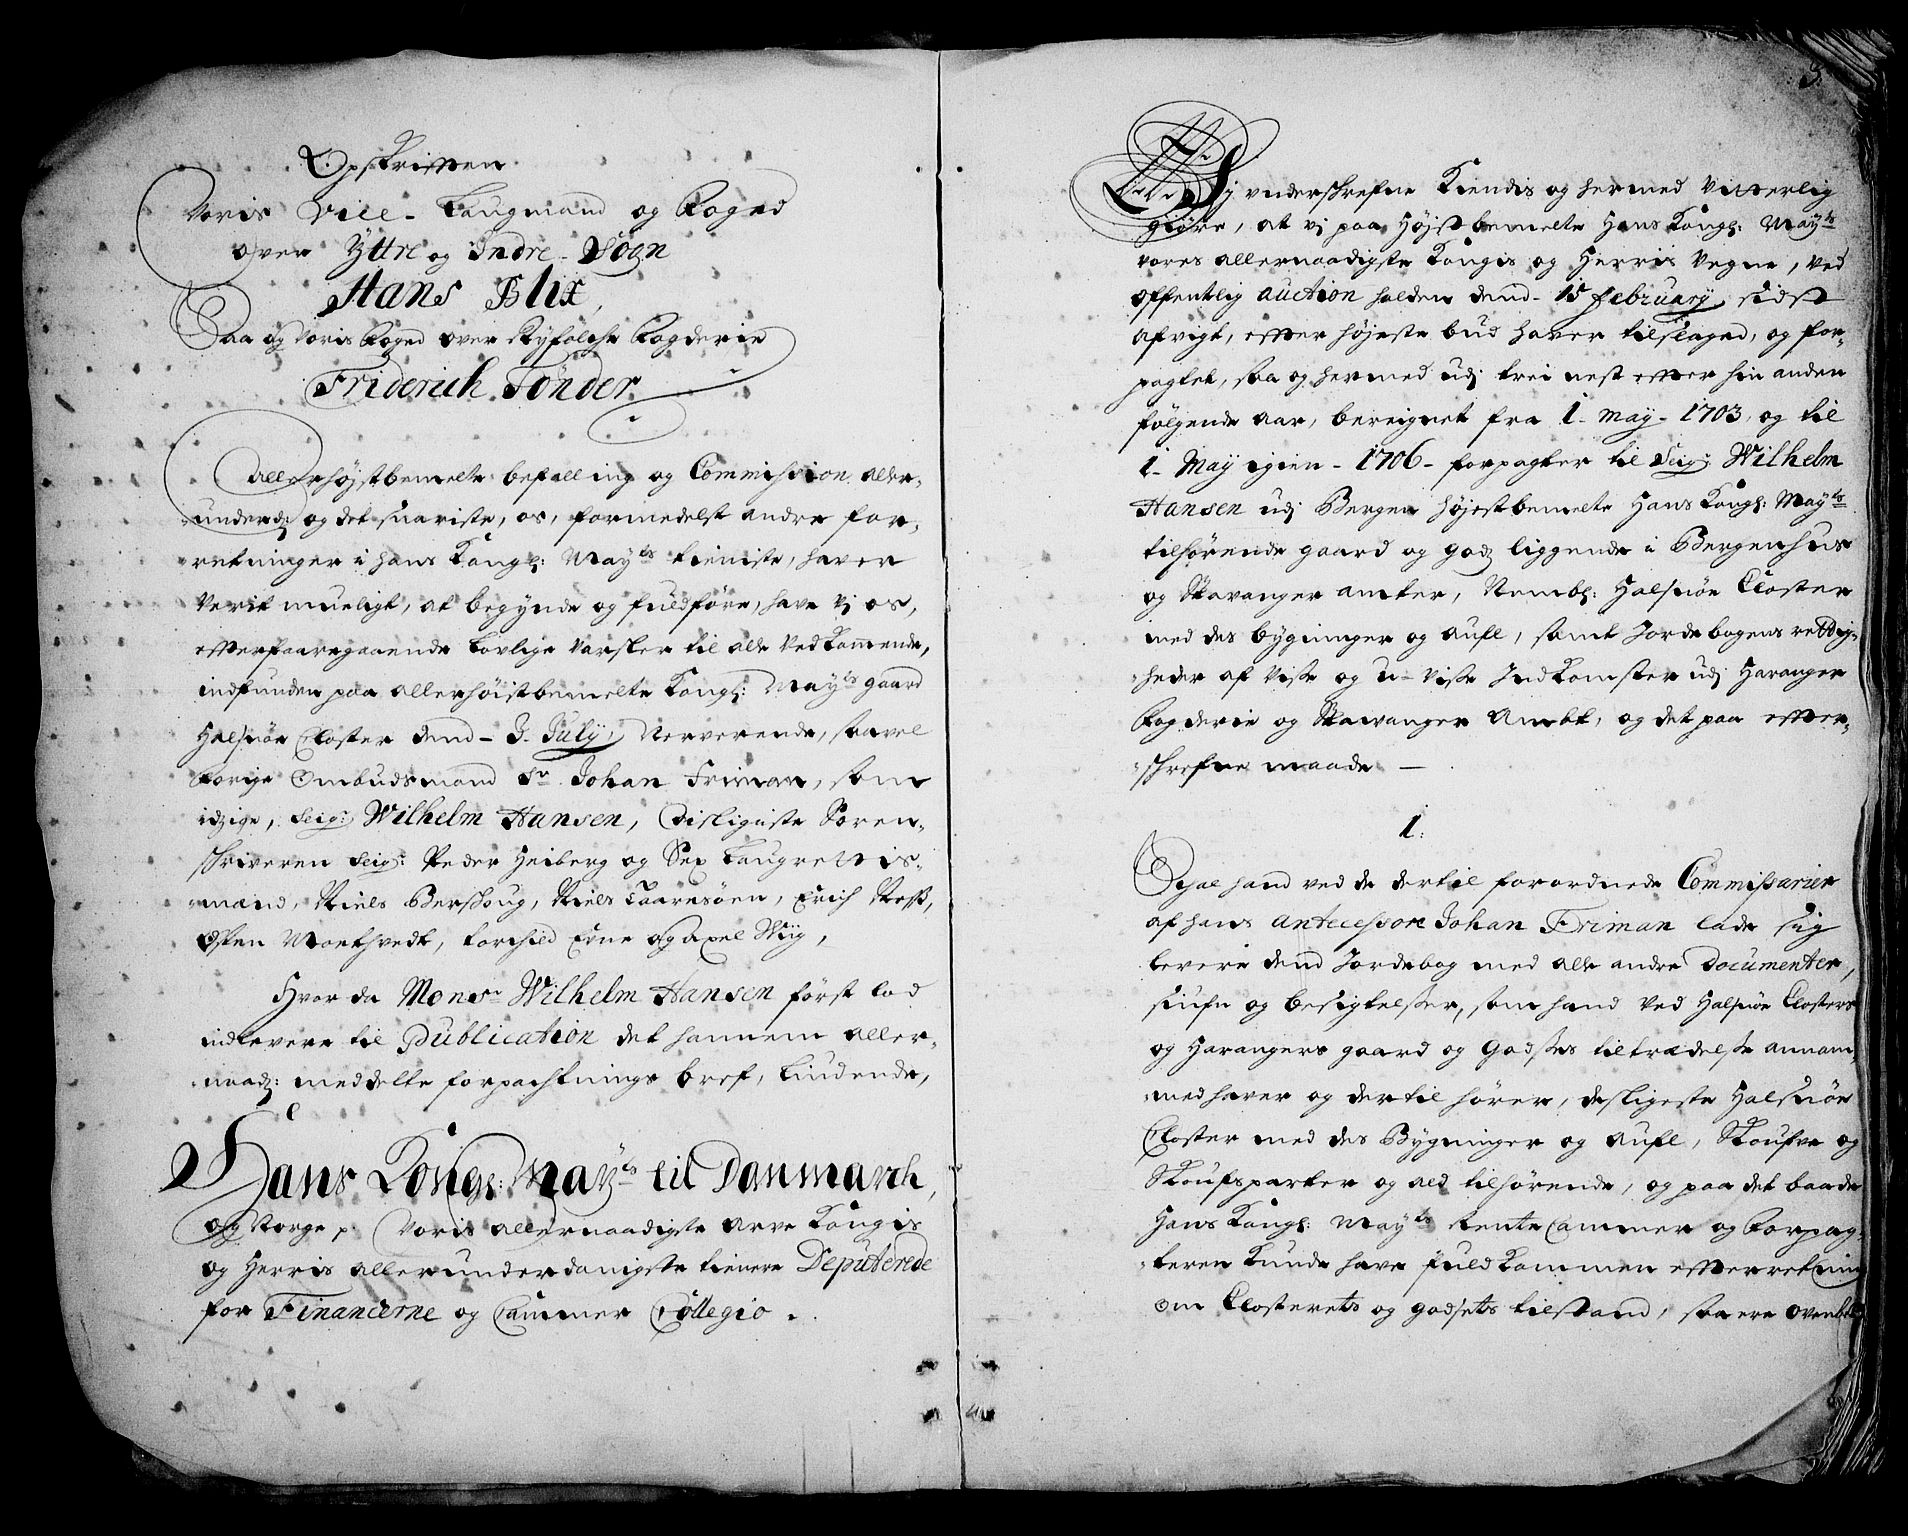 Opskriften
Voris Vice-Laugmand og Foged
over Yttre og Indre-Sogn
Hans Blix,
Saa og Voris Foged over Ryfølche Fogderie
Friderich Tønder.
Allerhøjstbemelte befalling og Commission aller-
underd: og det snariste, os, formedelst andre for-
retninger i hans Kongl: May:ts tieniste, haver
Verit mueligt, at begynde og fuldføre, have Vj os,
efterforregaaende Lovlige Varsler til alle Vedkommende,
indfunden paa allerhøistbemelte Kongl: May:ts gaard
Halsnøe Closter dend- 3. July, Nerverende, saavel
forige Ombudsmand Sr. Johan Friman, som
idzige, Seig: Wilhelm Hansen, Disligeste Soren-
skriveren Seig: Peder Heiberg og Sex Laugrettis-
mænd, Niels Bershoug, Niels Taaresøen, Erich Næss,
Osten Moethvedt, Torchild Eene og Axel Wiig,
Hvor da Monsr Wilhelm Hansen først lod
indlevere til Publication det hannem aller-
naad: meddelte forpachtnings bref, Liudende,
Hans Kongl: May:ts til Danmarch,
og Norge p. Voris allernaadigste Arve Kongis
og Herris allerunderdanigste tienere Deputerede
for Financerne og Cammer Collegio.
3.
Wj underschrefne Kiendis og hermed Vitterlig
giøre, at vj paa Højstbemelte Hans Kongl: May:ts
vores allernaadigste Kongis og Herris Vegne, ved
offentlig auction holden dend- 15 february sidst
afvigt, efter højeste bud haver tilslaged, og for-
pagtet, saa og hermed udj trei nest efter hin anden
følgende aar, beregnet fra 1. may- 1703, og til
1. May igien- 1706- forpagter til Seig: Wilhelm
Hansen udj Bergen højestbemelte Hans Kongl: May:ts
tilhørende gaard og godz liggende i Bergenhus
og Stavanger amter, Nembl: Halsnøe Closter
med des bygninger og aufl, samt Jordebogens rettig-
heder af Visse og u-Visse Indkomster udj Haranger
Fogderie og Stavanger Ambt, og det paa efter-
schrefne maade —
1:
Schal hand ved de dertil forordnede Commissarier
af hans Antecessore Johan Friman lade sig
levere dend Jordebog med alle andre Documenter,
siufn og besigtelser, som hand Ved Halsnøe Closters
og Harangers gaard og Godses tiltrædelse annam-
med haver og dertil hører, desligeste Halsnøe
Closter med des Bygninger og Aufl, Skoufve og
Skoufsparter og ald tilhørende, og paa det baade
Hans Kongl: May:ts Rente Cammer og Forpag-
teren Kunde have fuldkommen efterretning
om Closterets og godsets tilstand, saa ere ovenbte